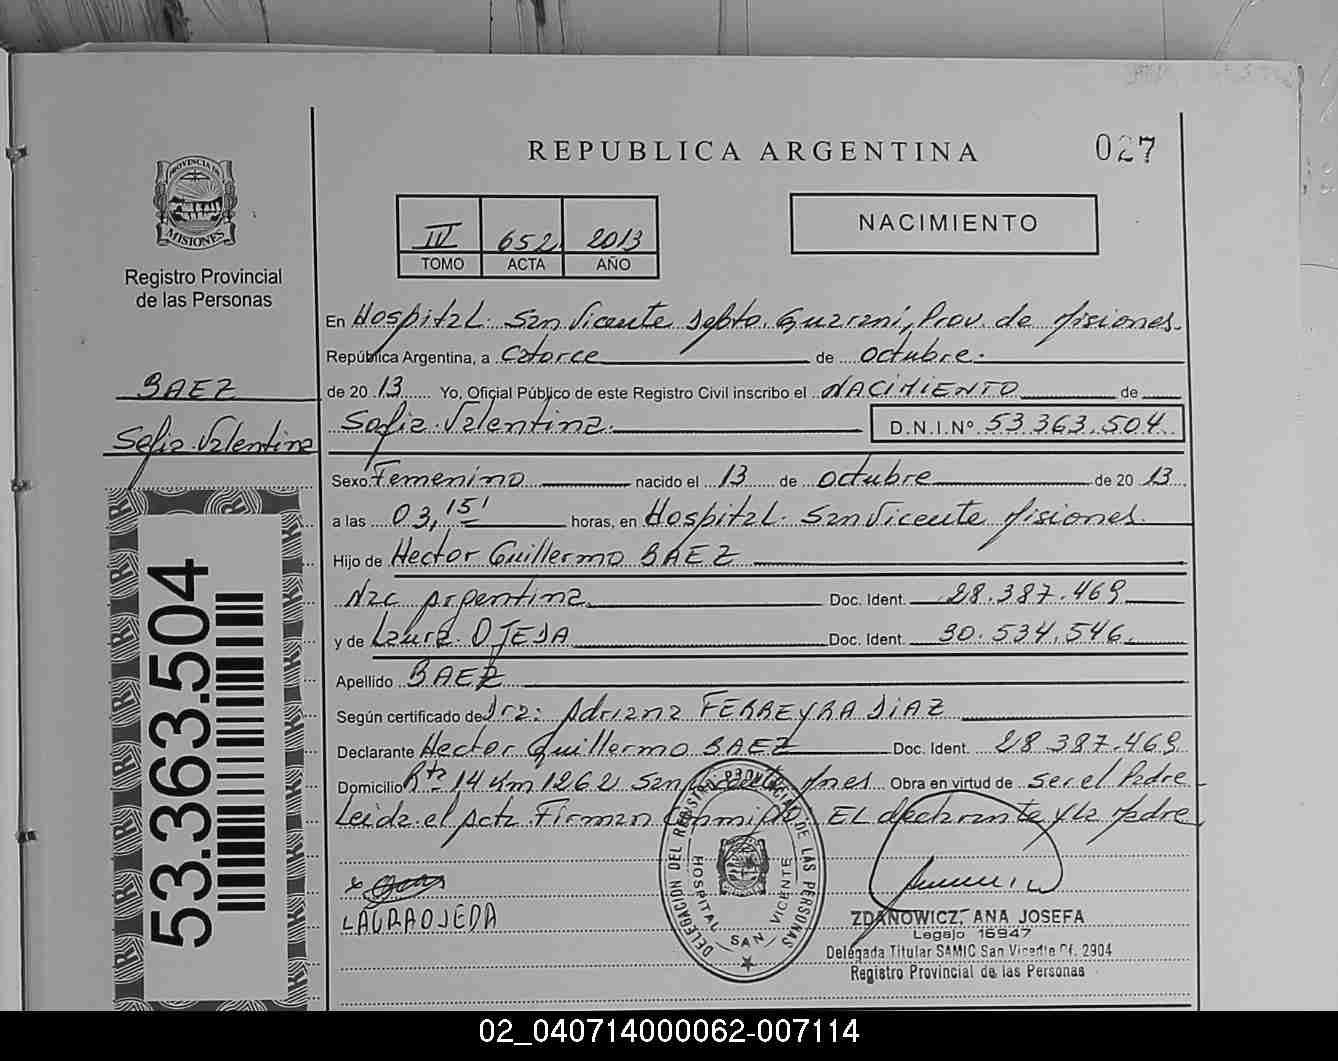 REPUBLICA ARGENTINA
027
PROVINCIA DE
MISIONES
Registro Provincial
de las Personas
IV 652 2013
TOMO ACTA AÑO
NACIMIENTO
En Hospital San Vicente Depto. Guarani, Prov. de Misiones
República Argentina, a Catorce de octubre
de 2013 Yo, Oficial Público de este Registro Civil inscribo el NACIMIENTO de
Sofia Valentina D.N.I.Nº 53.363.504
BAEZ
Sofia Valentina
Sexo Femenino nacido el 13 de octubre de 2013
a las 03,15' horas, en Hospital San Vicente Misiones
Hijo de Hector Guillermo BAEZ
Nac argentina Doc. Ident. 28.387.469
y de Laura OJEDA Doc. Ident. 30.534.546
Apellido BAEZ
Según certificado de Dra: Adriana FERREYRA DIAZ
Declarante Hector Guillermo BAEZ Doc. Ident. 28.387.469
Domicilio Rta 14 Km 1262 San Vicente Mnes Obra en virtud de ser el Padre
Leida el Acta Firman Conmigo El declarante y la Madre
LAURA OJEDA
DELEGACION DEL REGISTRO PROVINCIAL DE LAS PERSONAS
HOSPITAL SAN VICENTE
ZDANOWICZ, ANA JOSEFA
Legajo 16947
Delegada Titular SAMIC San Vicente Of. 2904
Registro Provincial de las Personas
53.363.504
02_040714000062-007114